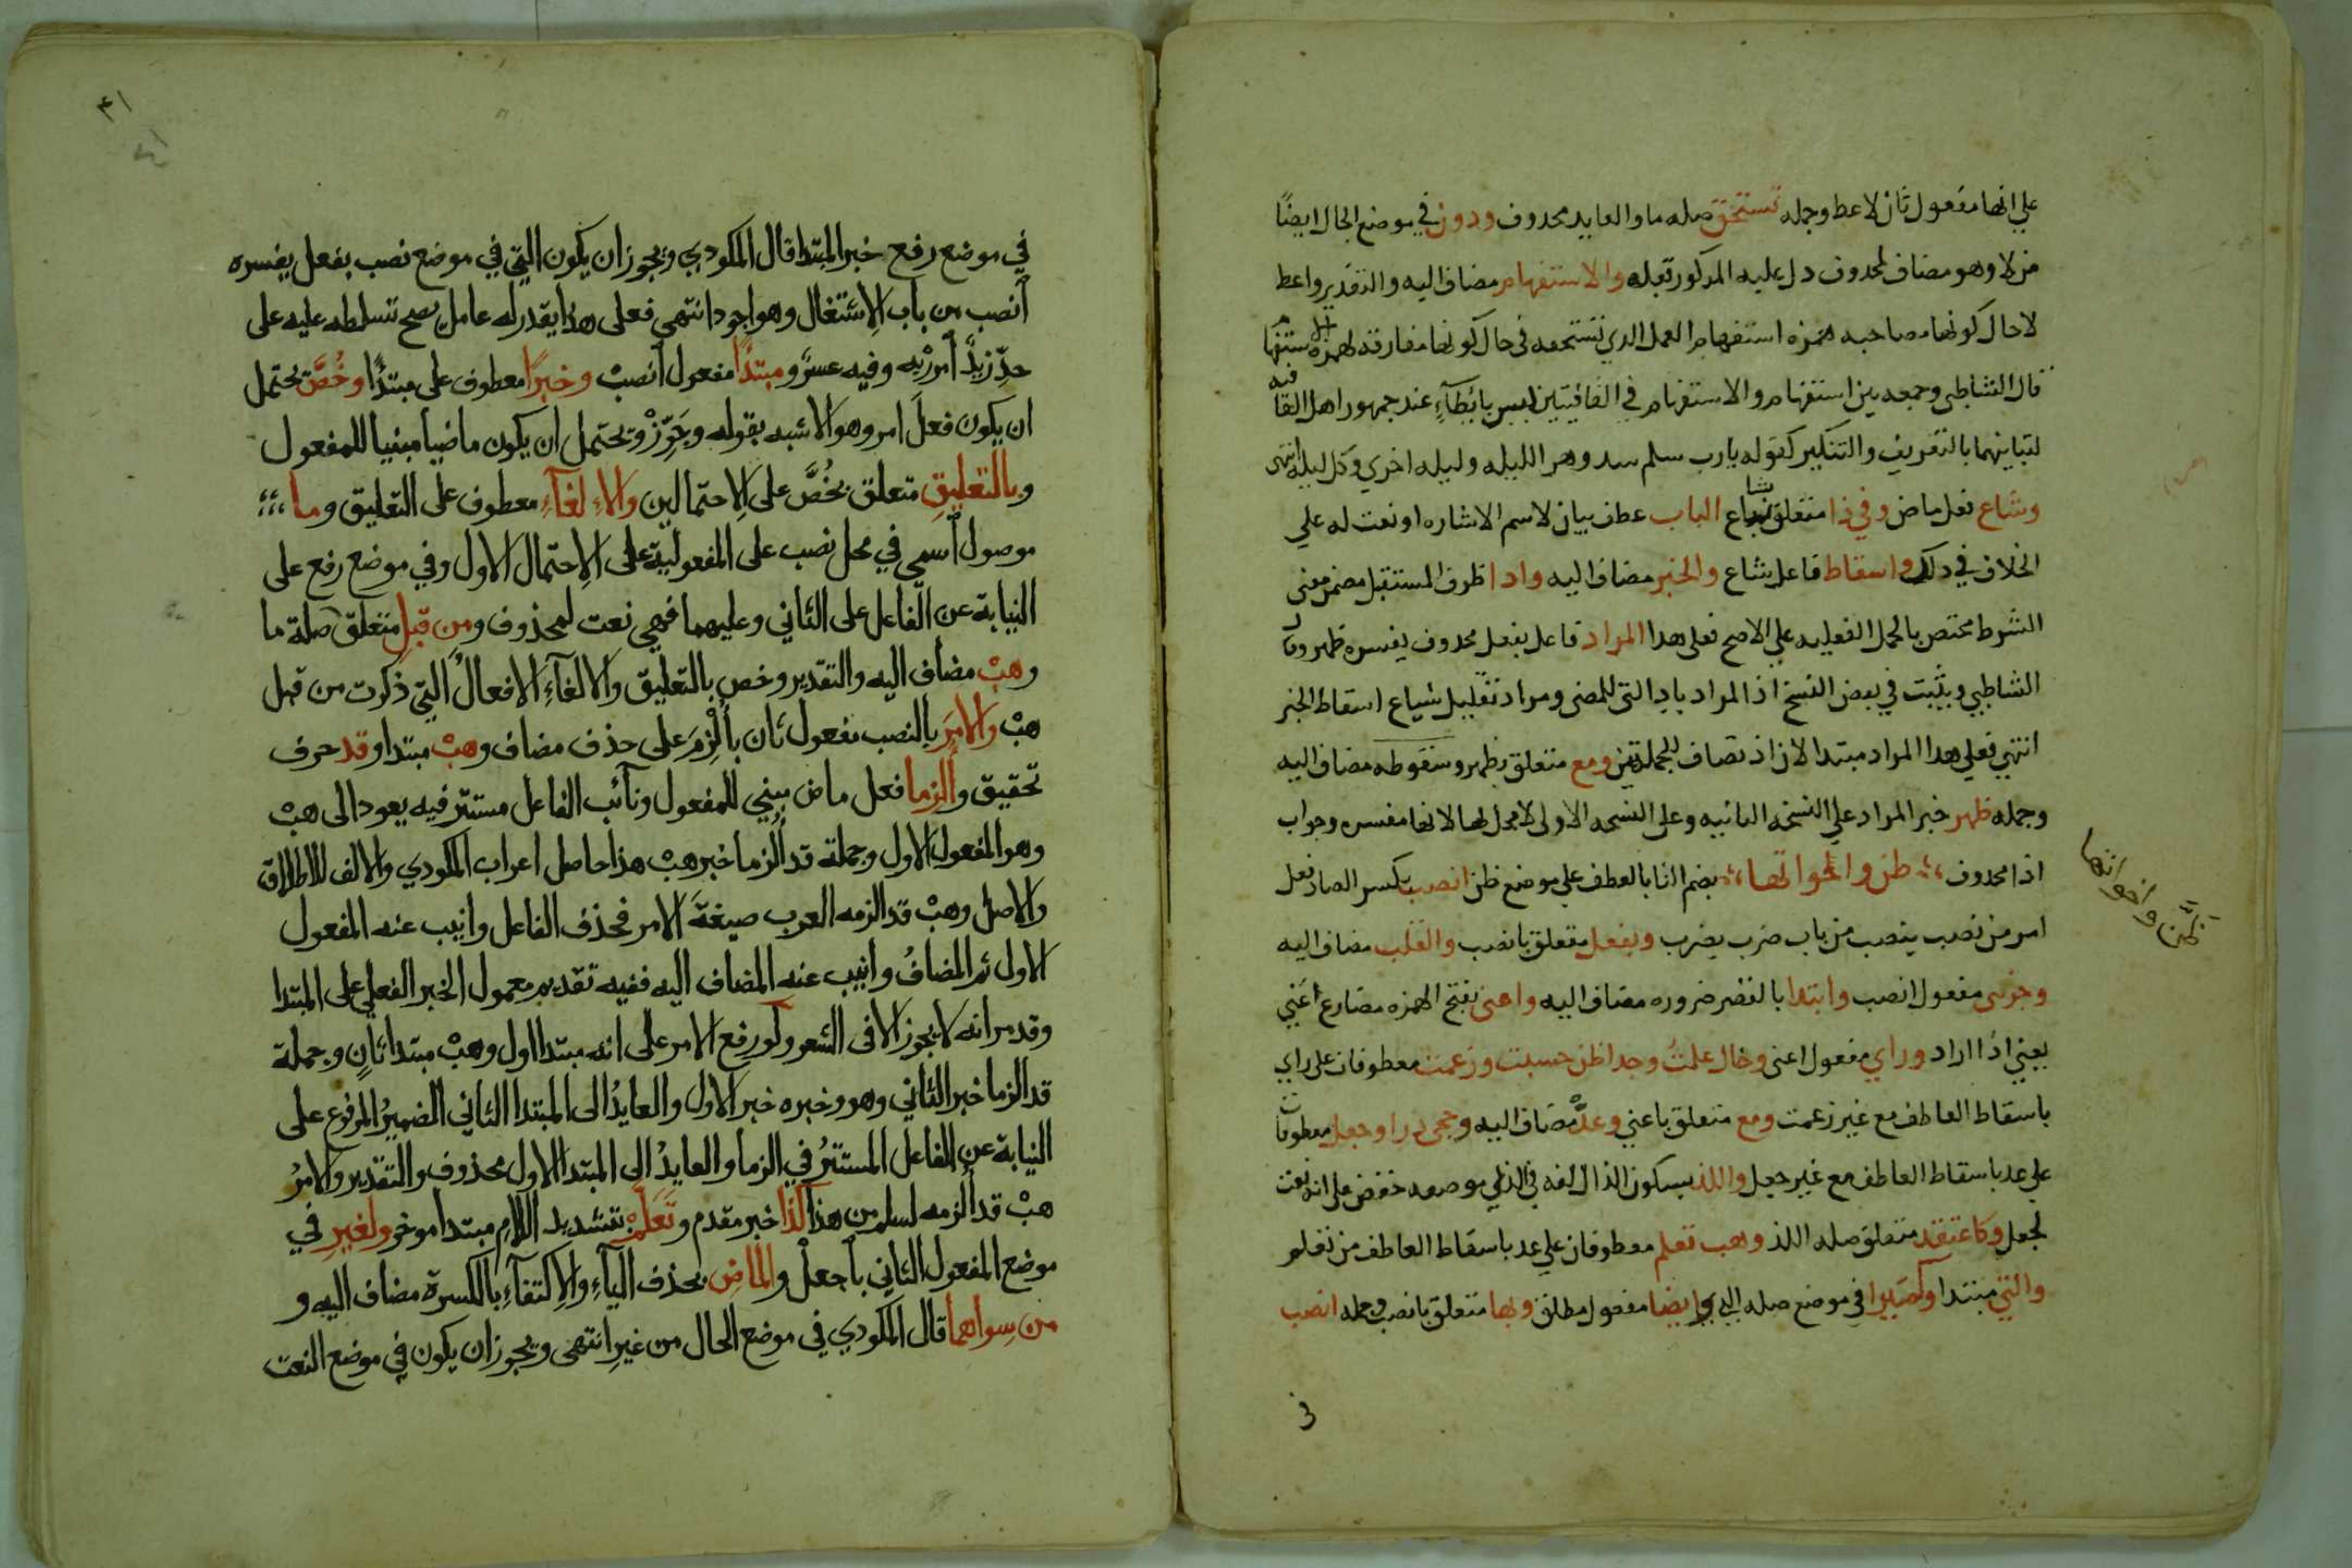 علي انها مفعول ثان لاعط وجمله تستحق صله ما والعايد محدوف ودون في موضع الحال ايضًا
من لا وهو مضاف لمحدوف دل عليه المدكور قبله والاستفهام مضاف اليه والتقدير واعط
لا حال كونها مصاحبه همزه استفهام العمل الدي تستحقه في حال كونها مفارقه لهمزه الاستفهام
قال الشاطبي وجمعه بين استفهام والاستفهام في القافيتين ليس بايطآءٍ عند جمهور اهل القافيه
لتباينهما بالتعريف والتنكير كقوله يارب سلم سدوهن الليله وليله اخري وكل ليله انتهى
وشاع فعل ماض وفي ذا متعلق بشاع الباب عطف بيان لاسم الاشاره او نعت له علي
الخلاف في دلك واسقاط فاعل شاع والخبر مضاف اليه وادا ظرف المستقبل مضمن معنى
الشرط مختص بالجمل الفعليه علي الاصح فعلى هدا المراد فاعل بفعل محدوف يفسره ظهر وقال
الشاطبي ويثبت في بعض النسخ اذ المراد باد التي للمضي ومراد تقليل شياع اسقاط الخبر
انتهي فعلي هدا المراد مبتدا لان اذ تضاف للجملتين ومع متعلق بظهر وسقوطه مضاف اليه
وجمله ظهر خبر المراد علي النسخه الثانيه وعلى النسخه الاولى لا محل لها لانها مفسره وجواب
اذا محدوف ؛ ظن واخواتها ؛ بضم التا بالعطف علي موضع ظن انصب بكسر الصاد فعل
امر من نصب ينصب من باب ضرب يضرب وبفعل متعلق بانصب والقلب مضاف اليه
وجزئى مفعول انصب وابتدا بالقصر ضروره مضاف اليه واعنى بفتح الهمزه مضارع اعني
يعني اذا اراد وراي مفعول اعنى وخال علمتُ وجدا ظن حسبت وزعمت معطوفات على راي
باسقاط العاطف مع غير زعمت ومع متعلق باعني وعدَّ مضاف اليه وحجى درا وجعل معطوفات
علي عد باسقاط العاطف مع غير جعل واللذ بسكون الذال لغه في الذي موضعه خفض على انه نعت
لجعل وكاعتقد متعلق صله اللذ وهب تعلم معطوفان علي عد باسقاط العاطف من تعلم
والتي مبتدا وكصيرا في موضع صله التي وايضا مفعول مطلق وبها متعلق بانصب وجمله انصب
في
ظن واخواتها
٤١
٤١
في موضع رفع خبر المبتدا قال المكودي ويجوز ان يكون التي في موضع نصب بفعل يفسره
أنصب من باب الاِشتغال وهو اجود انتهي فعلى هذا يقدر له عامل يصح تسلطه عليه على
حدّ زيدًا أمرر به وفيه عسرٌ ومبتدًا مفعول أنصبْ وخبرًا معطوف على مبتدًا وخُصَّ يحتمل
ان يكون فعلَ امر وهو الاشبه بقوله وجَوِّزْ ويحتمل ان يكون ماضيا مبنيا للمفعول
وبالتعليقِ متعلق بخُصَّ على الاِحتمالين والاِلغآءِ معطوف على التعليق وما ؛؛
موصول أسمي في محل نصب على المفعولية على الاِحتمال الاول وفي موضع رفع على
النيابة عن الفاعل على الثاني وعليهما فهي نعت لمحذوف ومِن قبلِ متعلق صلة ما
وهبْ مضاف اليه والتقدير وخص بالتعليق والالغآءِ الافعالُ التي ذكرت من قبل
هبْ والامرَ بالنصب مفعول ثان بأُلْزِمَ على حذف مضاف وهبْ مبتدا وقد حرف
تحقيق وأُلزما فعل ماض مبني للمفعول ونآئب الفاعل مستتر فيه يعود الى هبْ
وهو المفعول الاول وجملة قد أُلزما خبر هبْ هذا حاصل اعراب المكودي والالف للاطلاق
والاصل وهبْ قد الزمه العرب صيغةَ الامر فحذف الفاعل وانيب عنه المفعول
الاول ثم المضافُ وانيب عنه المضاف اليه ففيه تقديم معمول الخبر الفعلي على المبتدا
وقد مر انه لا يجوز الا فى الشعر ولو رفع الامر على انه مبتدا اول وهبْ مبتدا ثانٍ وجملة
قد الزما خبر الثاني وهو وخبره خبر الاول والعايدُ الى المبتدا الثاني الضميرُ المرفوع على
النيابة عن الفاعل المستترُ في الزما والعايدُ الى المبتدا الاول محذوف والتقدير والامرُ
هبْ قد أُلزمه لسلم من هذا كذا خبر مقدم وتَعَلَّمْ بتشديد اللامِ مبتدا موخر ولغيرِ في
موضع المفعول الثاني بأجعلْ والماضِ بحذف اليآءِ والاِكتفآءِ بالكسرة مضاف اليه و
من سِواهما قال المكودي في موضع الحال من غيرِ انتهى ويجوز ان يكون في موضع النعت